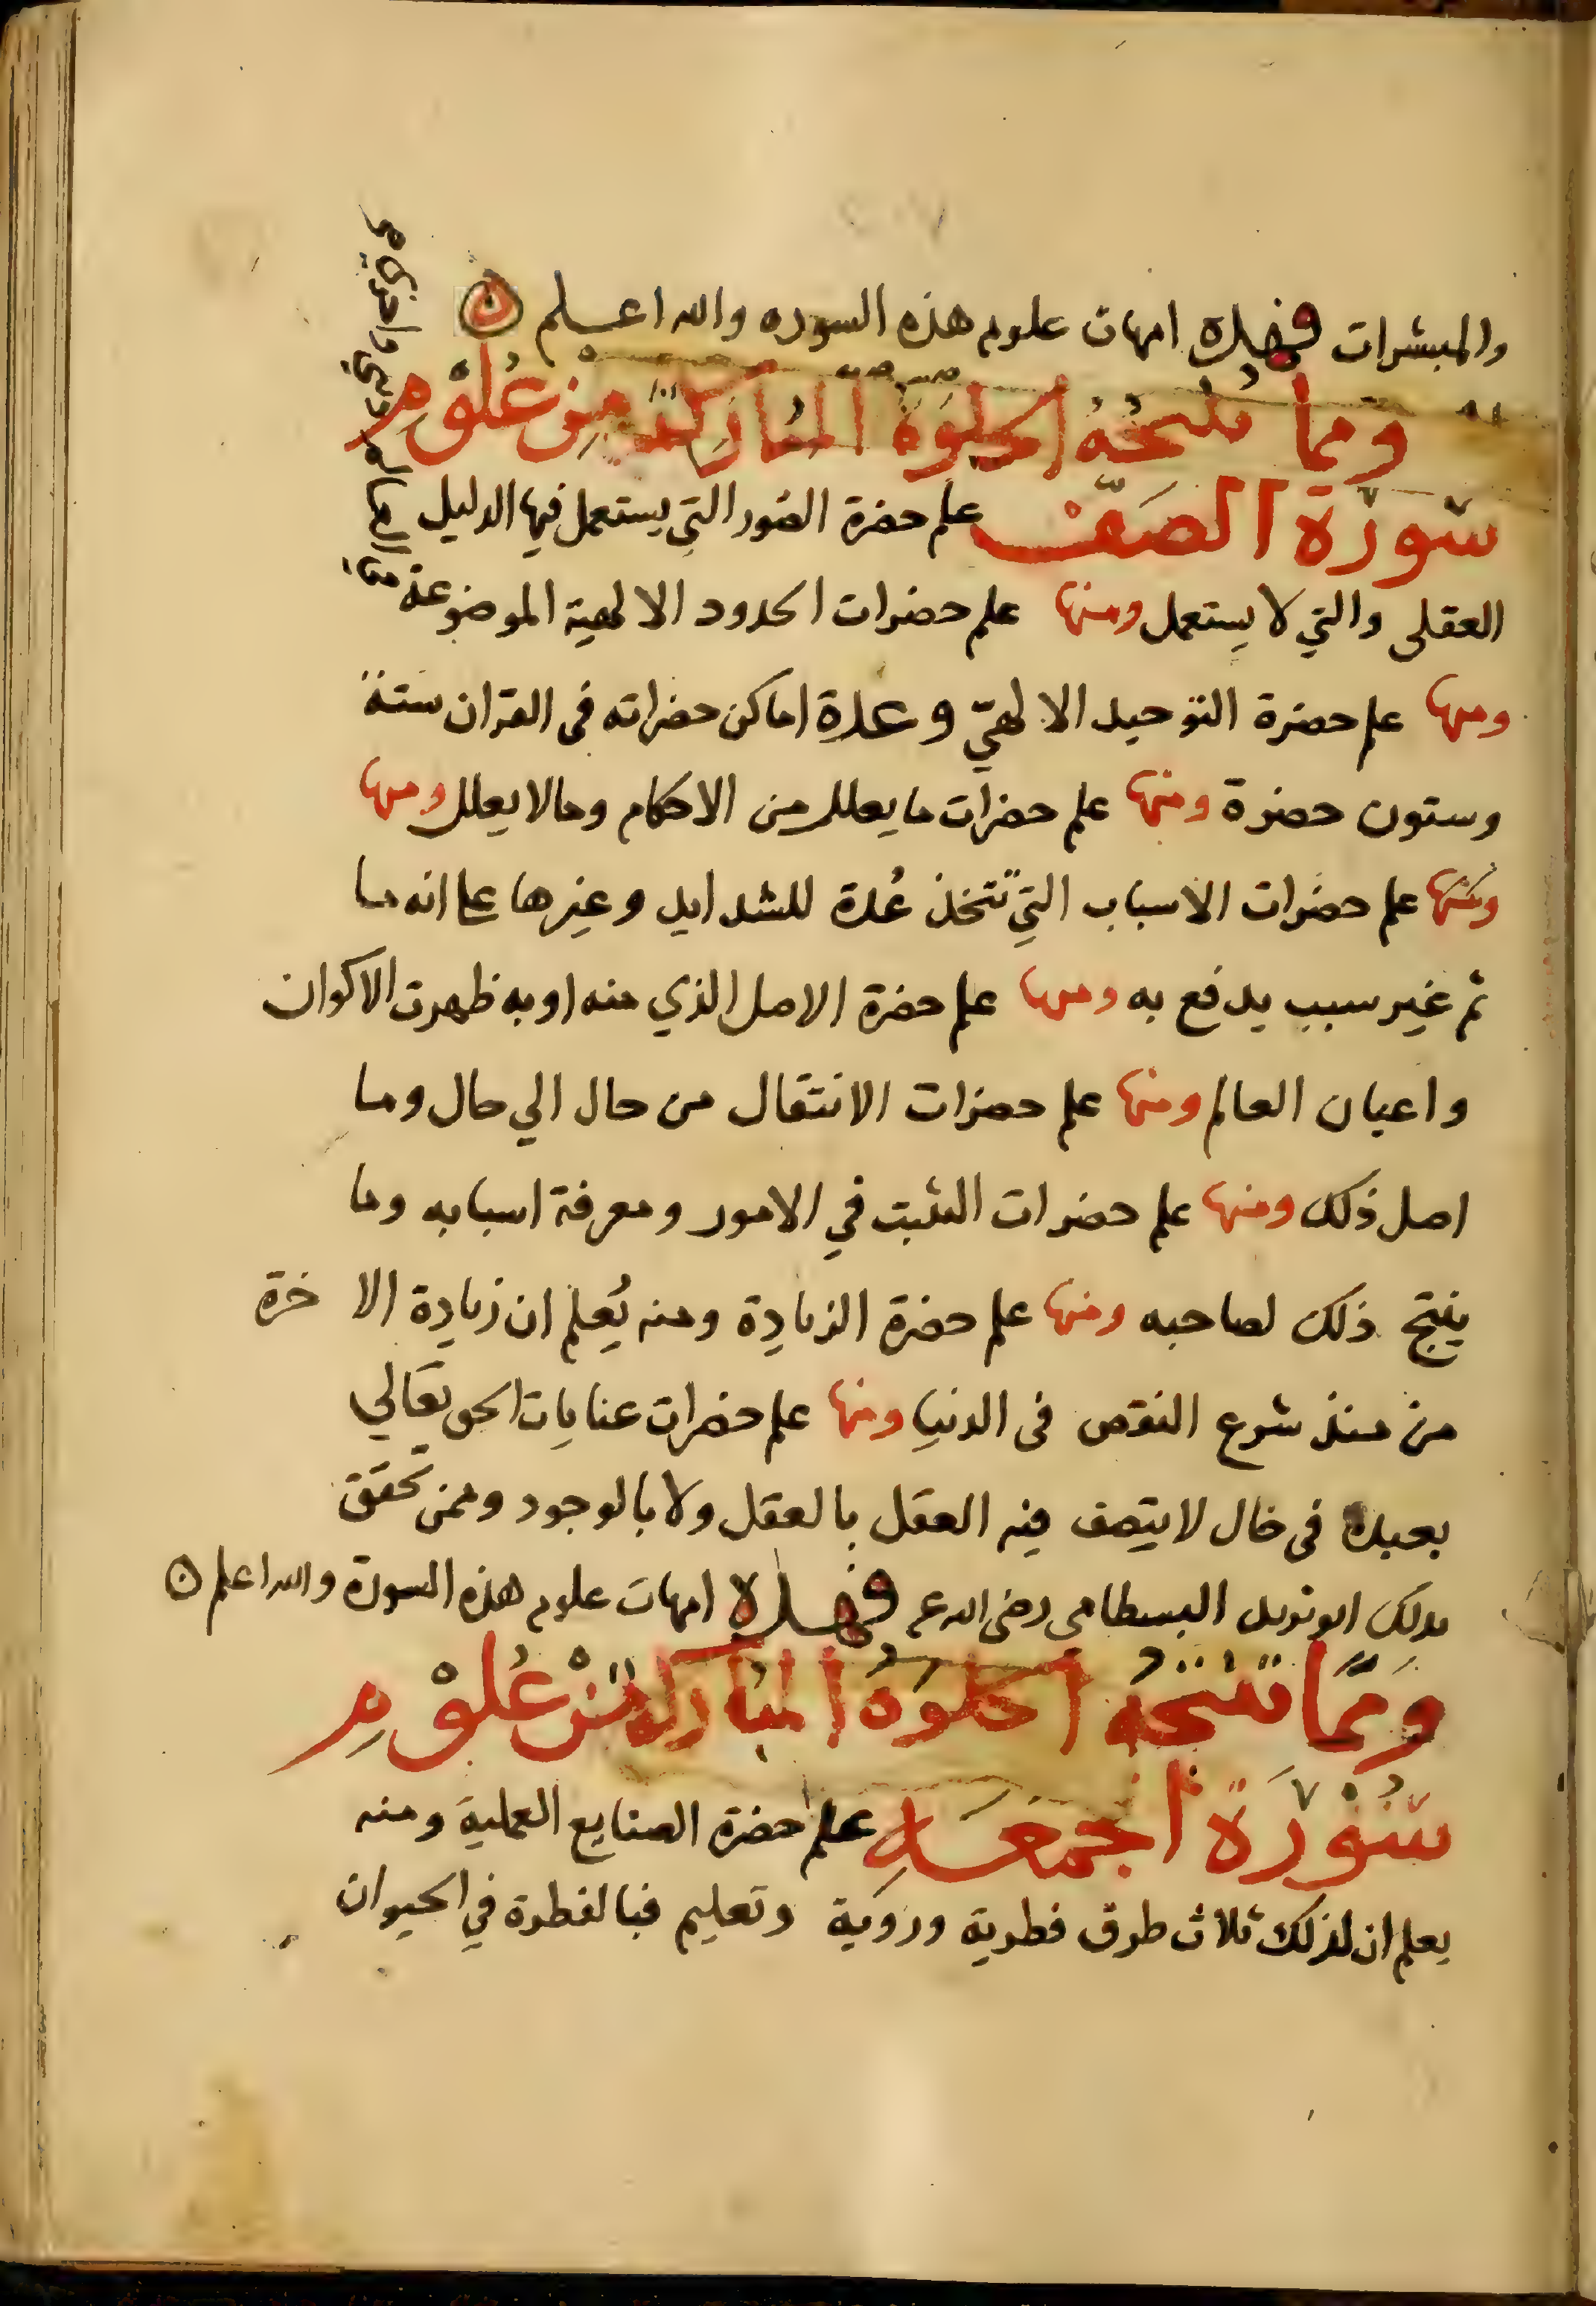 والمبشرات فهذه امهات علوم هذه السوره والله اعلم
ومما تنتجه الخلوة المباركة من علوم
سورة الصف علم حضرة الصور التي يستعمل فيها الدليل
العقلى والتي لا يستعمل ومنها علم حضرات الحدود الالهية الموضوعة
ومنها علم حضرة التوحيد الالهيّ وعدة اماكن حضراته فى القران ستة
وستون حضرة ومنها علم حضرات ما يعلل من الاحكام وما لا يعلل ومنها
ومنها علم حضرات الاسباب التي تتخذ عُدة للشدايد وغيرها على انه ما
ثم غير سبب يدفع به ومنها علم حضرة الاصل الذي منه او به ظهرت الاكوان
واعيان العالم ومنها علم حضرات الانتقال من حال الي حال وما
اصل ذلك ومنها علم حضرات التثبت في الامور ومعرفة اسبابه وما
ينتج ذلك لصاحبه ومنها علم حضرة الزيادة ومنه يُعلم ان زيادة الا خرة
من منذ شرع النقص فى الدنيا ومنها علم حضرات عنايات الحق تعالي
بعبده فى حال لا يتصف فيه العقل بالعقل ولا بالوجود وممن تحقق
بذلك ابو يزيد البسطامى رضى الله عنه فهذه امهات علوم هذه السورة والله اعلم
ومما تنتجه الخلوة المباركة من علوم
سُورَة الجمعة علم حضرة الصنايع العملية ومنه
يعلم ان لذلك ثلاث طرق فطرية وروية وتعليم فبالفطرة في الحيوان